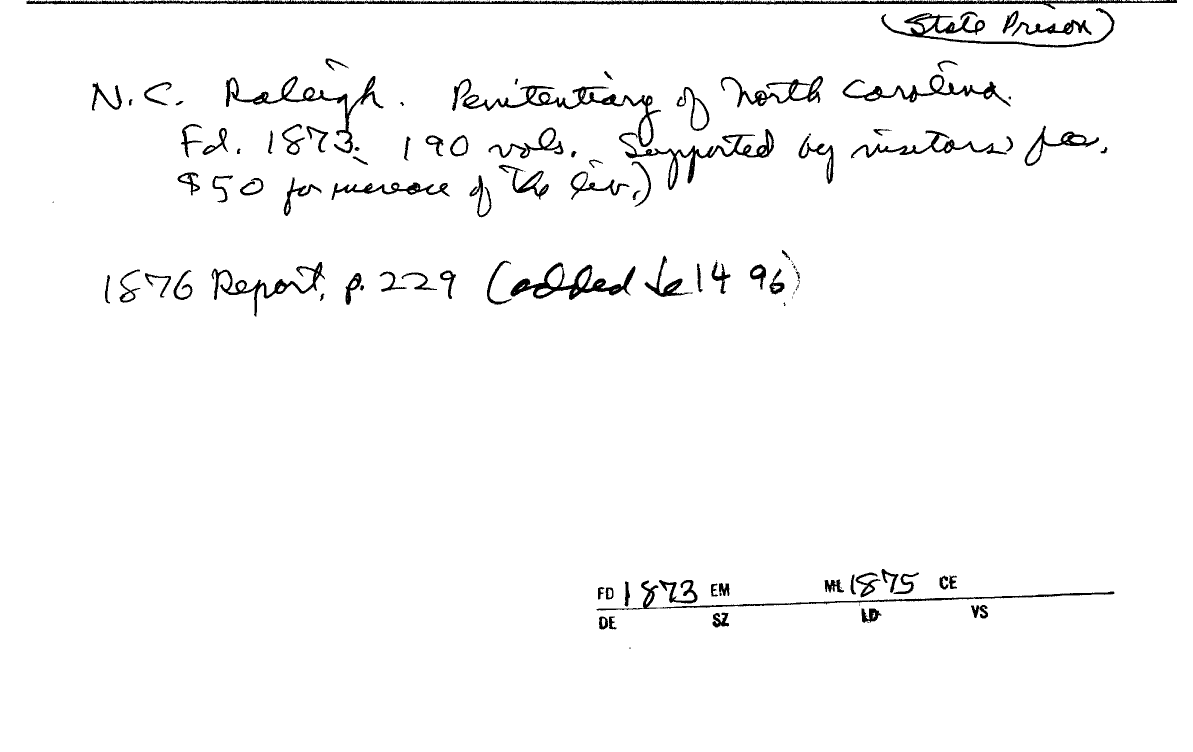 (State Prison)
N.C. Raleigh. Penitentiary of North Carolina.
Fd. 1873. 190 vols. Supported by visitors fee.
$50 for increase of the lib.)
1876 Report, p. 229 (added 14 96)
FD 1873 EM ML 1875 CE
DE SZ LD VS